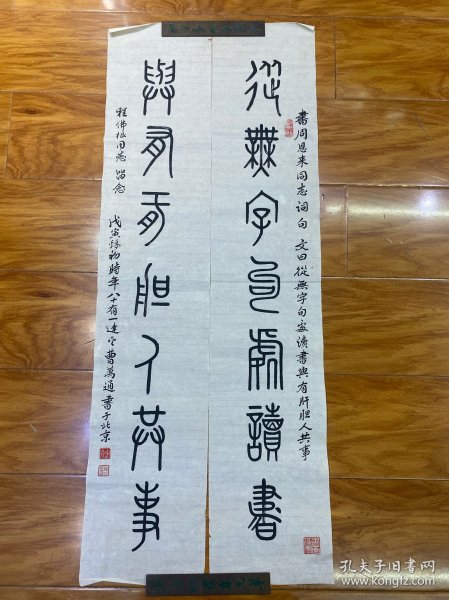 書周恩来同志词句 文曰從無字句處读書與有肝胆人共事
從無字句處讀書
與有肝胆人共事
程佛根同志留念
戊寅秋初時年八十有一連它曹萬通書于北京
孔夫子旧书网